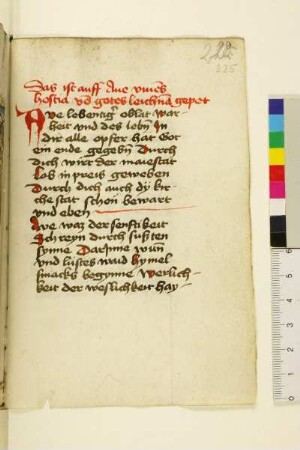 222
225
Das ist auff Aue viuens
hostia vnd gotes leichnam gepet
Aue lebentig oblat war-
heit vnd des lebn In
dir alle opfer hat Got
ein ende gegebn Durch
dich wirt der maiestat
Lob in preis geweben
Durch dich auch dÿ kir-
che stat schon bewart
vnd eben
Aue waz der senftikeit
Ich reyn durch sussen
sonne Darynne wun
vnd lustes waid hymel
smacks begynne werlich-
keit der weslichkeit hay-